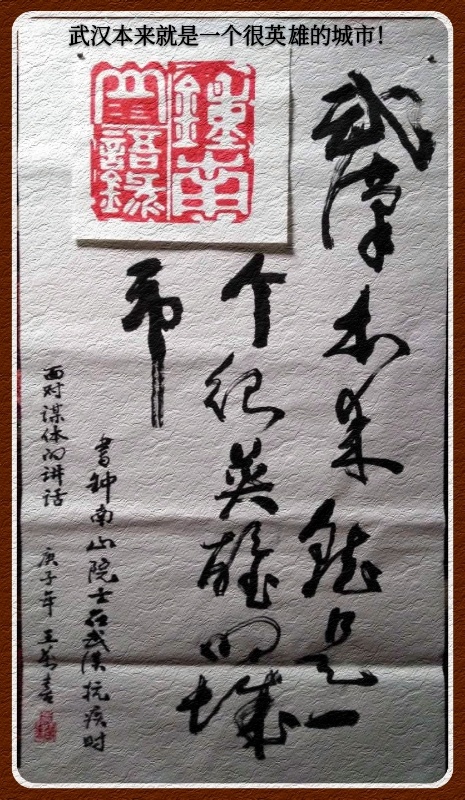 武汉本来就是一个很英雄的城市！
鍾南
山語錄
武漢本来就是一
个很英雄的城
市
書钟南山院士在武漢抗疫时
面对谋体的讲话 庚子年 王万喜